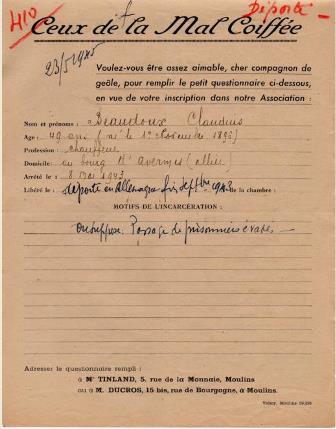 410
Déporté
Ceux de la Mal Coiffée
23/5/1945
Voulez-vous être assez aimable, cher compagnon de
geôle, pour remplir le petit questionnaire ci-dessous,
en vue de votre inscription dans notre Association :
Nom et prénoms : Beaudoux Claudius
Age : 49 ans (né le 1er Novembre 1895)
Profession : Chauffeur
Domicile : au bourg d'Avermes (allier)
Arrêté le : 8 Mai 1943
Libéré le : déporté en Allemagne fin septbre 1943 de la chambre :
MOTIFS DE L'INCARCÉRATION :
On suppose : Passage de prisonniers évadés —
Adresser le questionnaire rempli :
à Me TINLAND, 5, rue de la Monnaie, Moulins
ou à M. DUCROS, 15 bis, rue de Bourgogne, à Moulins.
Moulins